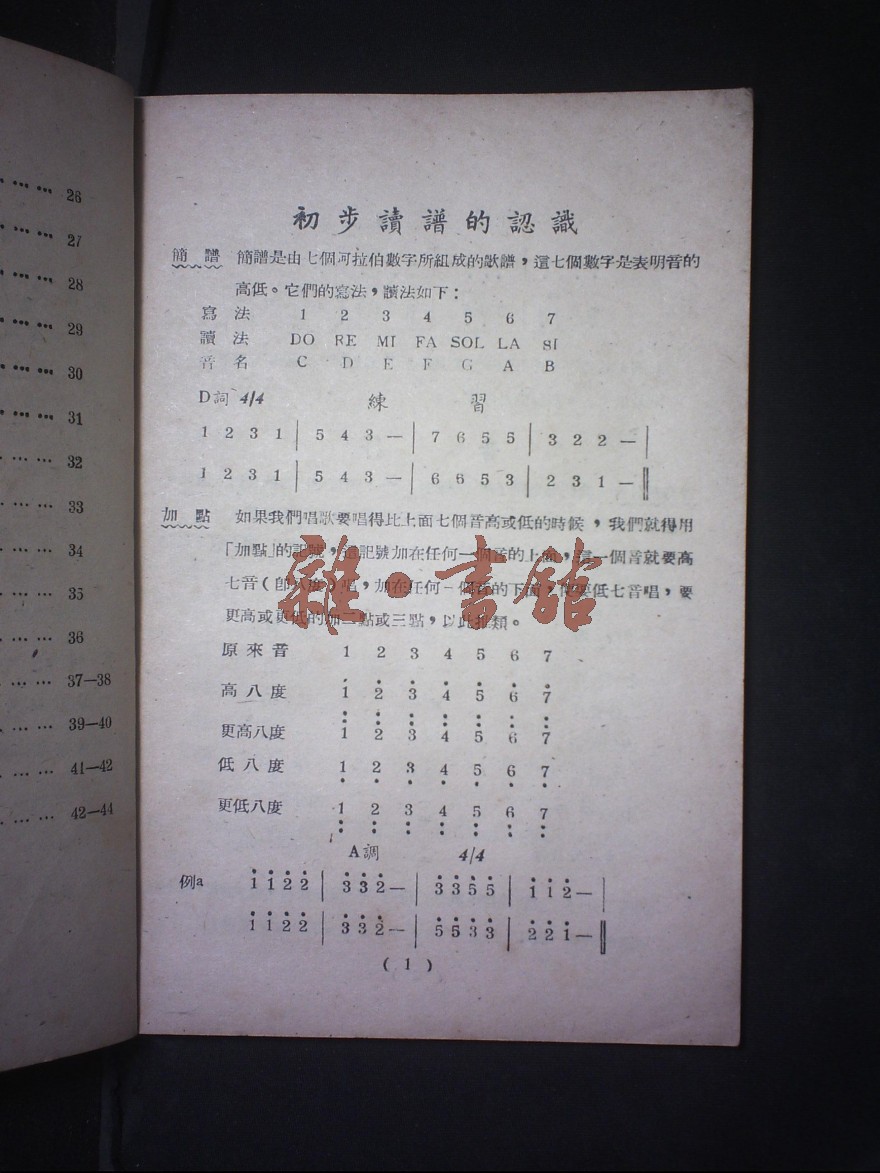 … … 26
… … 27
… … 28
… … 29
… … 30
… … 31
… … 32
… … 33
… … 34
… … 35
… … 36
… … 37—38
… … 39—40
… … 41—42
… … 42—44
初步讀譜的認識
簡譜 簡譜是由七個阿拉伯數字所組成的歌譜，這七個數字是表明音的
高低。它們的寫法，讀法如下：
寫法 1 2 3 4 5 6 7
讀法 DO RE MI FA SOL LA SI
音名 C D E F G A B
D詞 4/4 練習
1 2 3 1 | 5 4 3 — | 7 6 5 5 | 3 2 2 — |
1 2 3 1 | 5 4 3 — | 6 6 5 3 | 2 3 1 — ‖
加點 如果我們唱歌要唱得比上面七個音高或低的時候，我們就得用
「加點」的記號，這記號加在任何一個音的上面，這一個音就要高
七音（卽八度）唱，加在任何一個音的下面，便要低七音唱，要
更高或更低的加二點或三點，以此推類。
原來音 1 2 3 4 5 6 7
高八度 1̇ 2̇ 3̇ 4̇ 5̇ 6̇ 7̇
更高八度 1̈ 2̈ 3̈ 4̈ 5̈ 6̈ 7̈
低八度 1̣ 2̣ 3̣ 4̣ 5̣ 6̣ 7̣
更低八度 1̤ 2̤ 3̤ 4̤ 5̤ 6̤ 7̤
A調 4/4
例a 1̇ 1̇ 2̇ 2̇ | 3̇ 3̇ 2̇ — | 3̇ 3̇ 5̇ 5̇ | 1̇ 1̇ 2̇ — |
1̇ 1̇ 2̇ 2̇ | 3̇ 3̇ 2̇ — | 5̇ 5̇ 3̇ 3̇ | 2̇ 2̇ 1̇ — ‖
( 1 )
雜·書館